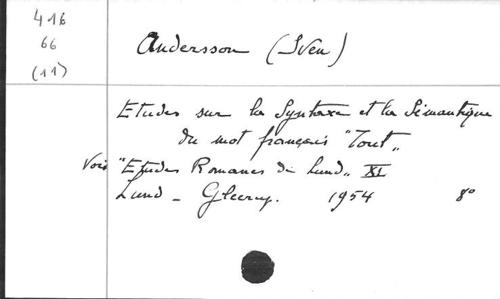 416
66
(11)
Andersson (Sven)
Etudes sur la Syntaxe et la Sémantique
du mot français "Tout"
Voir "Etudes Romanes de Lund" XI
Lund - Gleerup. 1954 8°